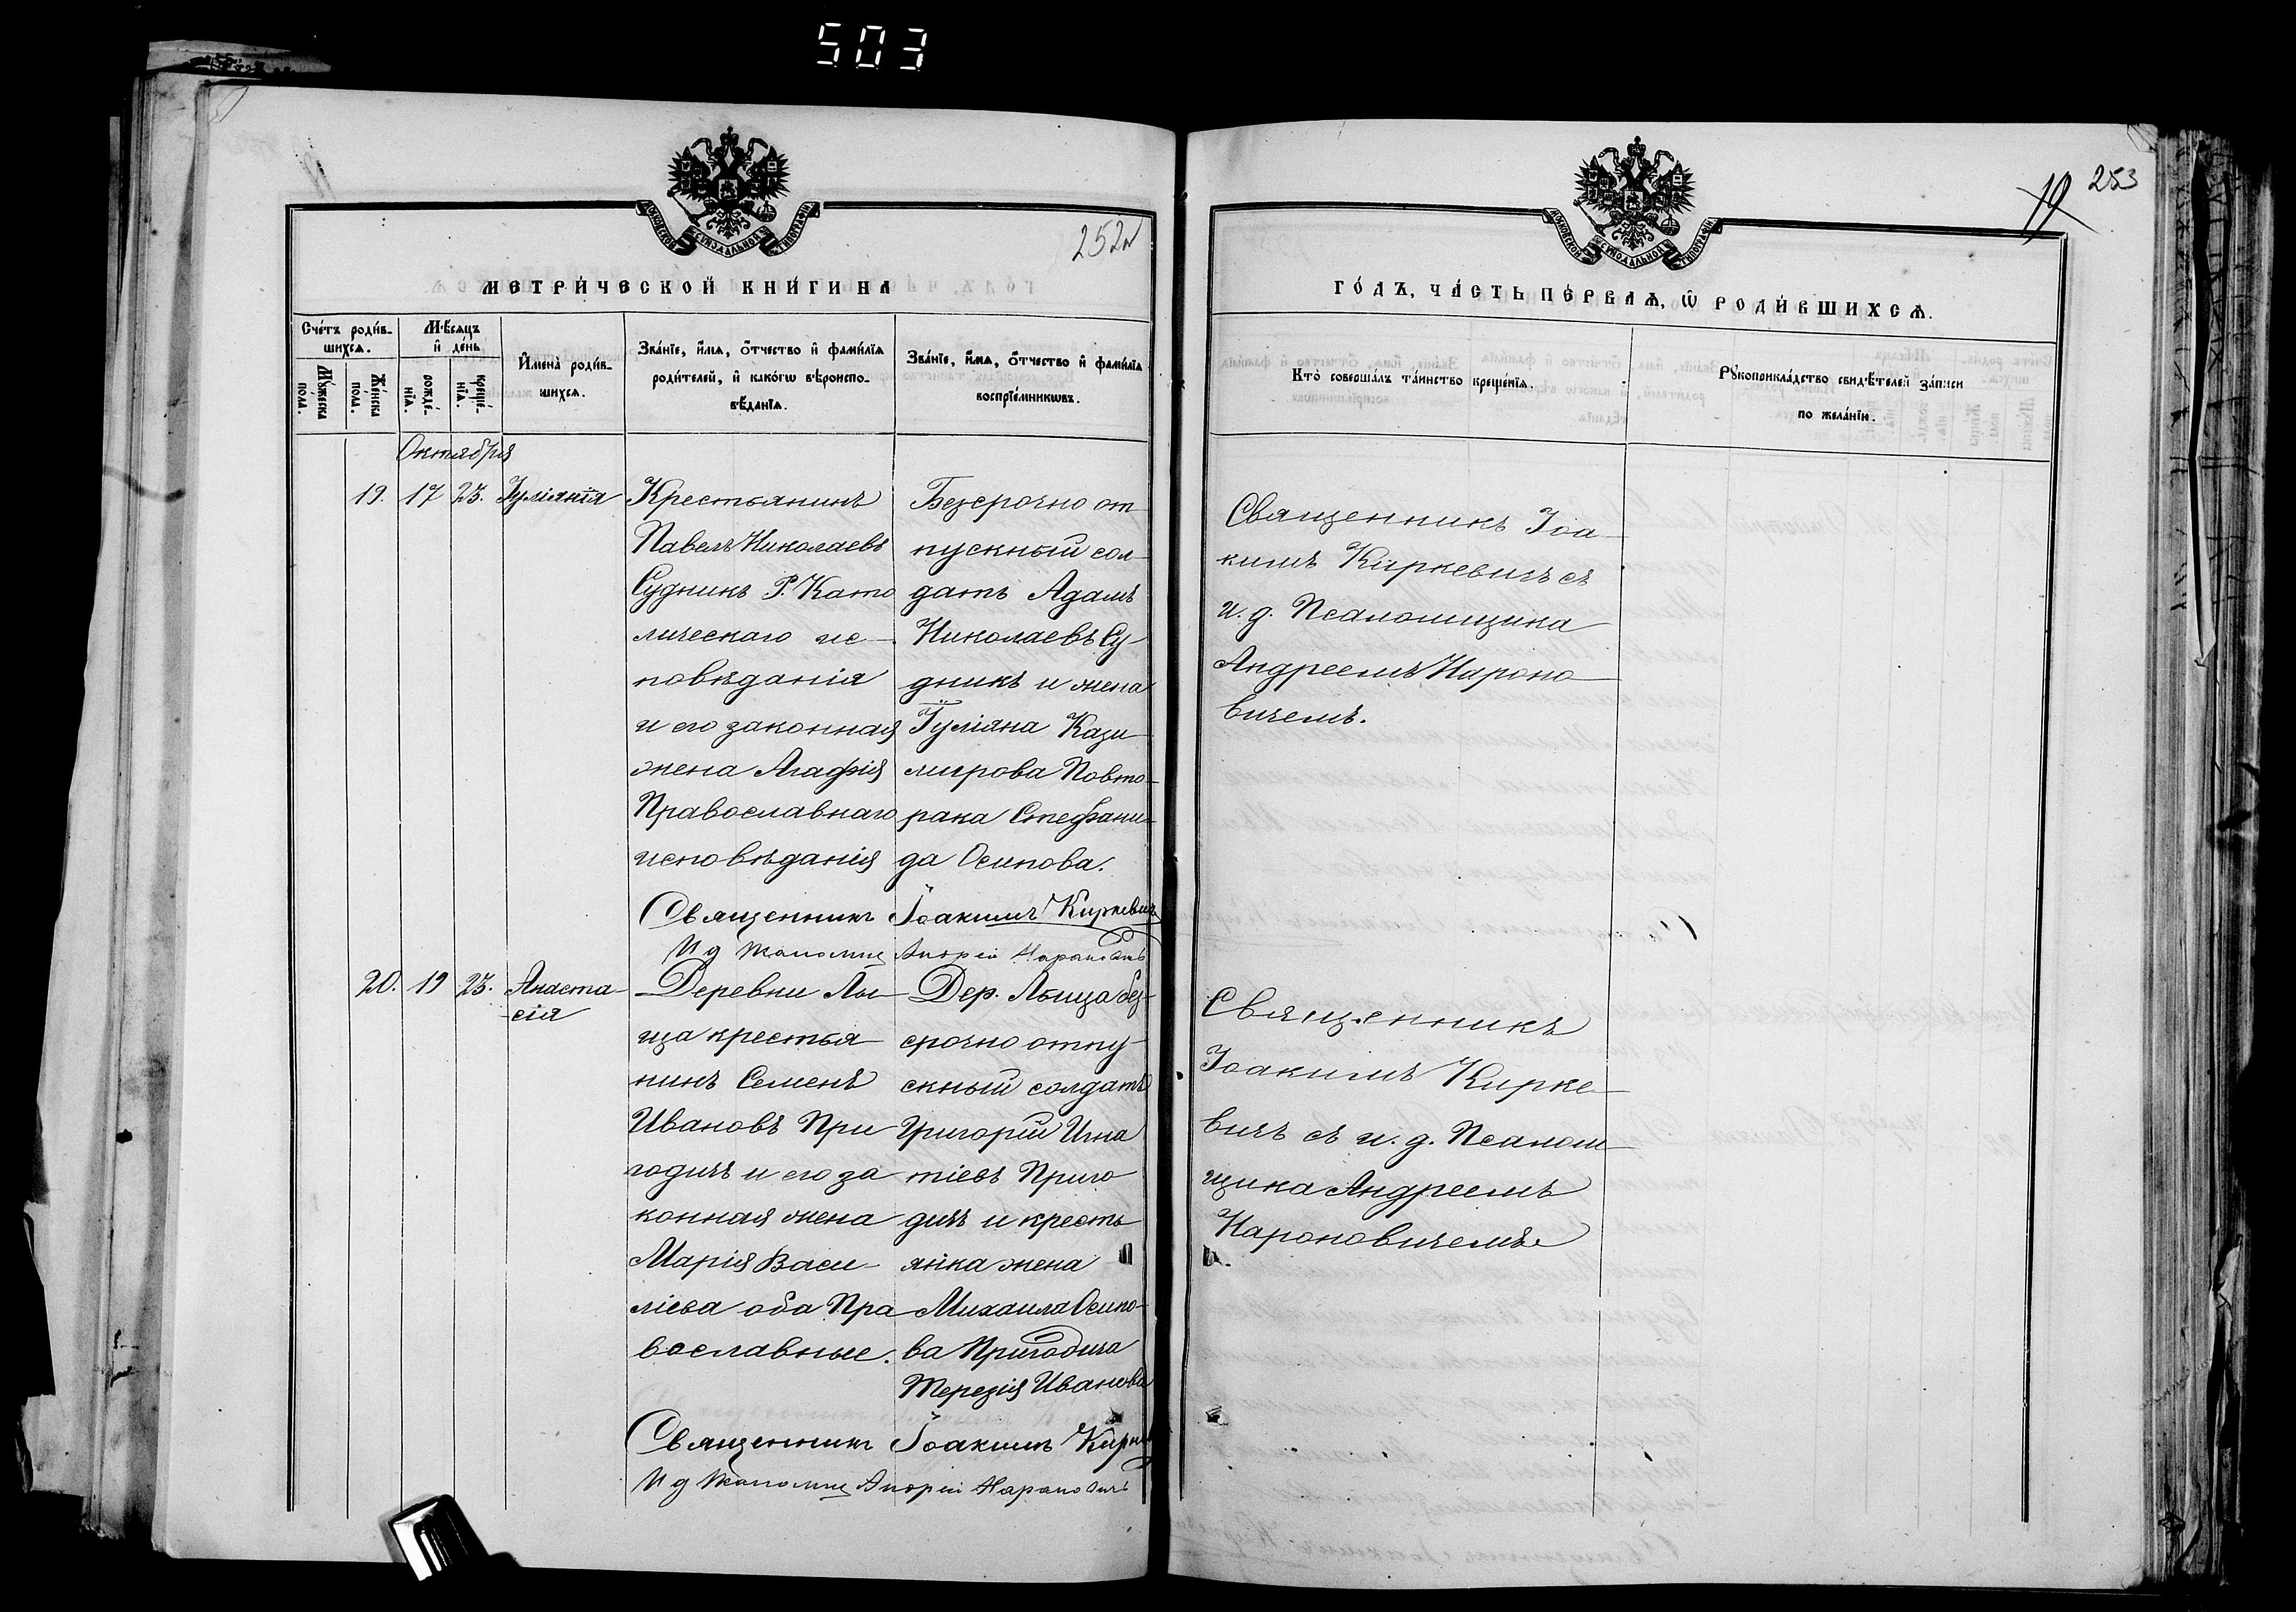 503
МОСКОВСКОЙ СѴНОДАЛЬНОЙ ТИПОГРАФІИ
252
МЕТРИ́ЧЕСКОЙ КНИ́ГИ НА
Сче́тъ роди́в-
шихсѧ.
Мꙋ́жеска
пола.
Же́нска
пола.
Мѣ́сѧцъ
и҆ де́нь
рожде́-
нїѧ.
креще́-
нїѧ.
И҆мена̀ роди́в-
шихсѧ.
Зва́нїе, и҆́мѧ, ѻ҆́тчество и҆ фами́лїѧ
роди́телей, и҆ како́гѡ вѣроиспо-
вѣ́данїѧ.
Зва́нїе, и҆́мѧ, ѻ҆́тчество и҆ фами́лїѧ
воспрїе́мникѡвъ.
Октября
19. 17 23. Іуліанія
Крестьянинъ
Павелъ Николаевъ
Судникъ Р. Като
лическаго ис-
повѣданія
и его законная
жена Агафія
Православнаго
исповѣданія
Безсрочно от
пускный сол-
датъ Адамъ
Николаевъ Су-
дникъ и жена
Іуліана Кази
мирова Повто-
рака Стефани-
да Осипова.
Священникъ Іоакимъ Киркевичъ
И д Псаломщ Андрей Нароновичъ
20. 19 23. Анаста-
-сія
Деревни Лы-
ща крестья-
нинъ Семенъ
Ивановъ При
годичъ и его за
конная жена
Марія Васи-
ліева оба Пра-
вославные.
Дер. Лыща без-
срочно отпу-
скный солдатъ
Григорій Игна
тіевъ Приго
дичъ и кресть
янка жена
Михаила Осипо-
ва Пригодича
Терезія Иванова
Священникъ Іоакимъ
И д Псаломщ Андрей Нароновичъ
МОСКОВСКОЙ СѴНОДАЛЬНОЙ ТИПОГРАФІИ
19 253
ГО́ДЪ, ЧА́СТЬ ПЕ́РВАѦ, Ѡ҆ РОДИ́ВШИХСѦ.
Кто̀ соверша́лъ та́инство креще́нїѧ.
Рꙋкоприкла́дство свидѣ́телей за́писи
по жела́нїю.
Священникъ Іоа-
кимъ Киркевичъ съ
и. д. Псаломщика
Андреемъ Нароно-
вичемъ.
Священникъ
Іоакимъ Кирке-
вичъ съ и. д. Псалом-
щика Андреемъ
Нароновичемъ